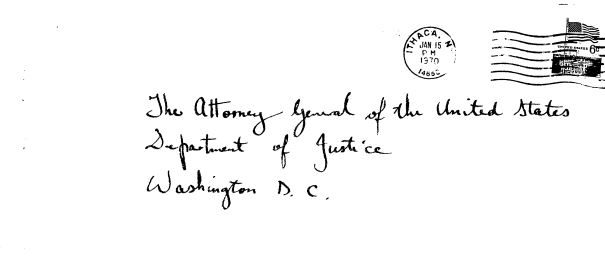 ITHACA, N.
JAN 15
PM
1970
UNITED STATES
6¢
The Attorney General of the United States
Department of Justice
Washington D. C.